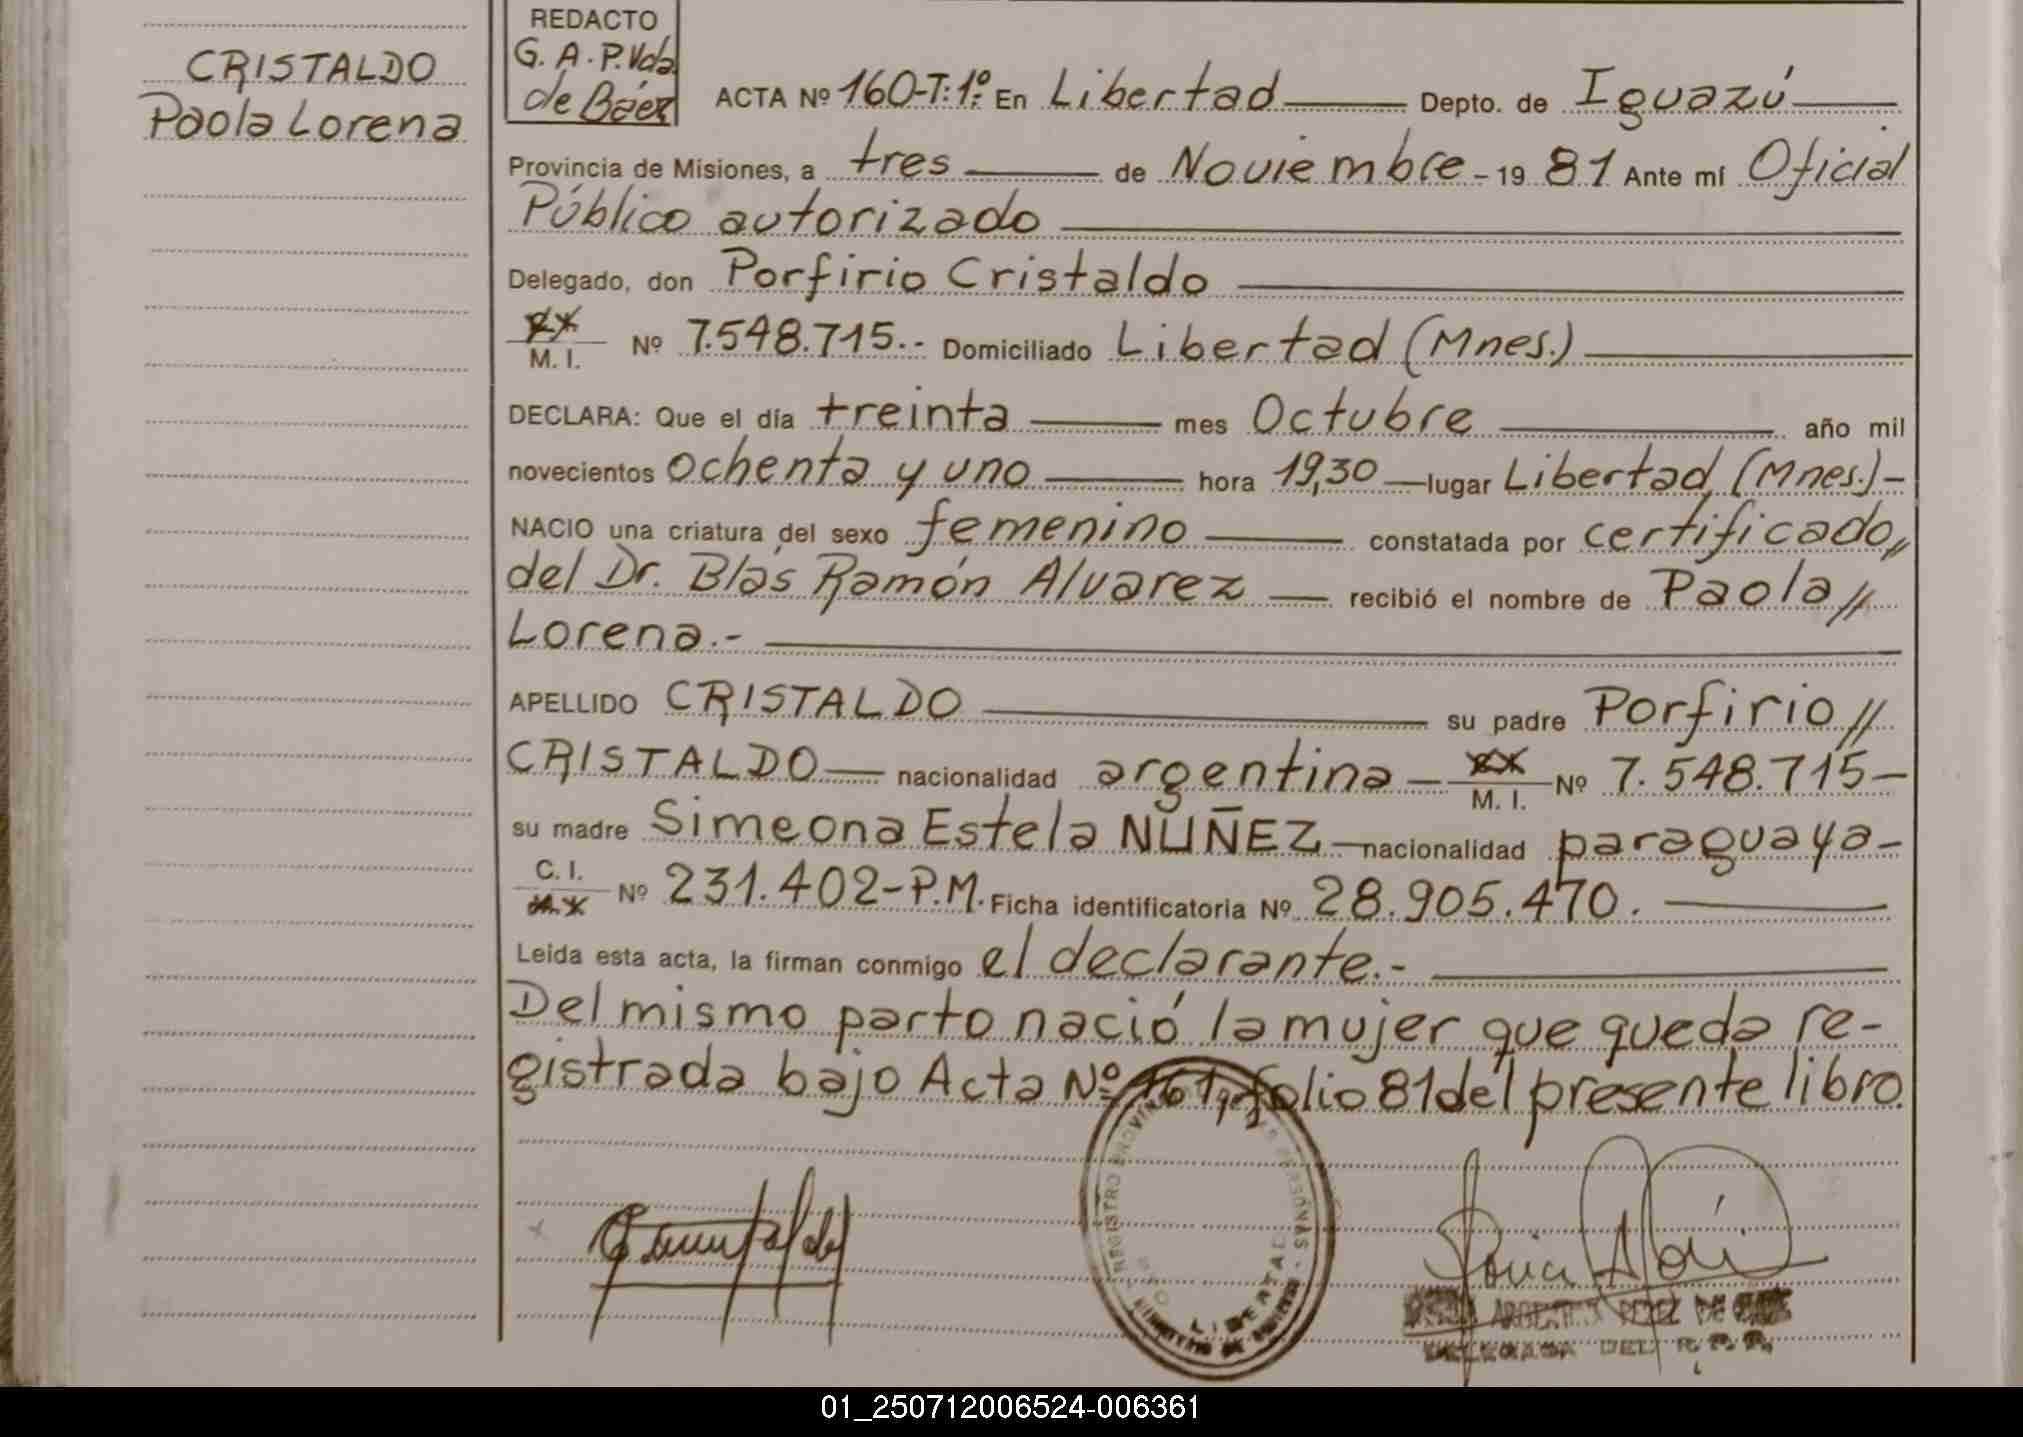 CRISTALDO
Paola Lorena
REDACTO
G. A. P. Vda.
de Báez
ACTA Nº 160-T:1º: En Libertad Depto. de Iguazú
Provincia de Misiones, a tres de Noviembre - 19 81 Ante mí Oficial
Público autorizado
Delegado, don Porfirio Cristaldo
M. I. Nº 7.548.715.- Domiciliado Libertad (Mnes.)
DECLARA: Que el día treinta mes Octubre año mil
novecientos ochenta y uno hora 19,30 lugar Libertad (Mnes.)-
NACIO una criatura del sexo femenino constatada por certificado//
del Dr. Blas Ramón Alvarez recibió el nombre de Paola//
Lorena.-
APELLIDO CRISTALDO su padre Porfirio//
CRISTALDO nacionalidad argentina M. I. Nº 7.548.715-
su madre Simeona Estela NUÑEZ nacionalidad paraguaya-
C. I. Nº 231.402-P.M. Ficha identificatoria Nº 28.905.470.
Leida esta acta, la firman conmigo el declarante.-
Del mismo parto nació la mujer que queda re-
gistrada bajo Acta Nº 161, folio 81 del presente libro.
REGISTRO PROVINCIAL DE LAS PERSONAS
LIBERTAD
ARGENTINA PEREZ DE
DELEGADA DEL R. P. P.
01_250712006524-006361